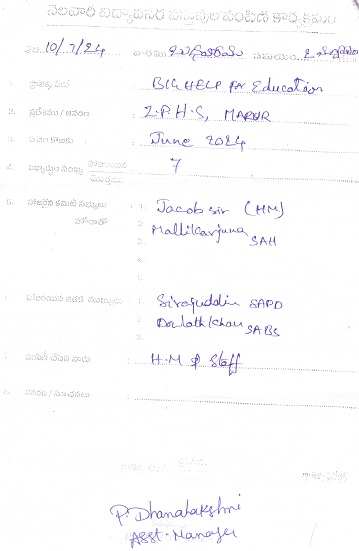 నెలవారి విద్యావసర వస్తువుల పంపిణి కార్యక్రమం
తేది. 10/7/24 వారము బుధవారము సమయం.
1. ప్రాజెక్టు పేరు : BIG HELP For Education
2. ప్రదేశము / ఆవరణ : Z.P.H.S, MARUR
3. ఏ నెల కొరకు : June 2024
4. విద్యార్థుల సంఖ్య హాజరయిన / మొత్తము : 7
5. హాజరైన కమిటీ సభ్యులు : 1. Jacob sir (HM)
హోదాతో 2. Mallikarjuna SAH
3.
4.
5.
హాజరయిన ఇతర ముఖ్యులు : 1. Sirajuddin SAPD
2. Doulathkhan SABS
3.
పంపిణి చేసిన వారు : H.M & Staff
సలహాలు / సూచనలు :
P. Dhanalakshmi
Asst. Manager